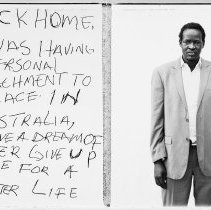 CK HOME.
WAS HAVING
ERSONAL
CHMENT TO
LACE IN
STRALIA,
VE A DREAM OF
ER GIVE UP
E FOR A
TER LIFE